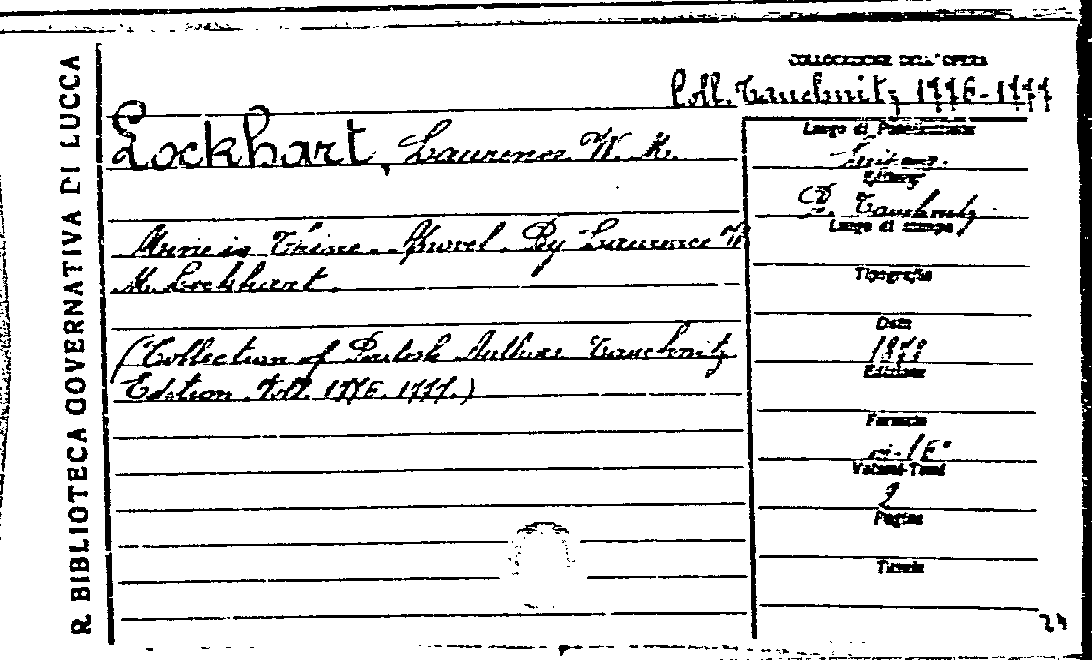 R. BIBLIOTECA GOVERNATIVA DI LUCCA
COLLOCAZIONE DELL'OPERA
Coll. Tauchnitz 1776-1777
Lockhart, Laurence W. M.
Mine is Thine. Novel. By Laurence W.
M. Lockhart.
(Collection of British Authors Tauchnitz
Edition. Voll. 1776. 1777.)
Luogo di Pubblicazione
Editore
B. Tauchnitz
Luogo di stampa
Tipografia
Data
1878
Edizione
Formato
in-16°
Volumi-Tomi
2
Pagine
Tavole
24